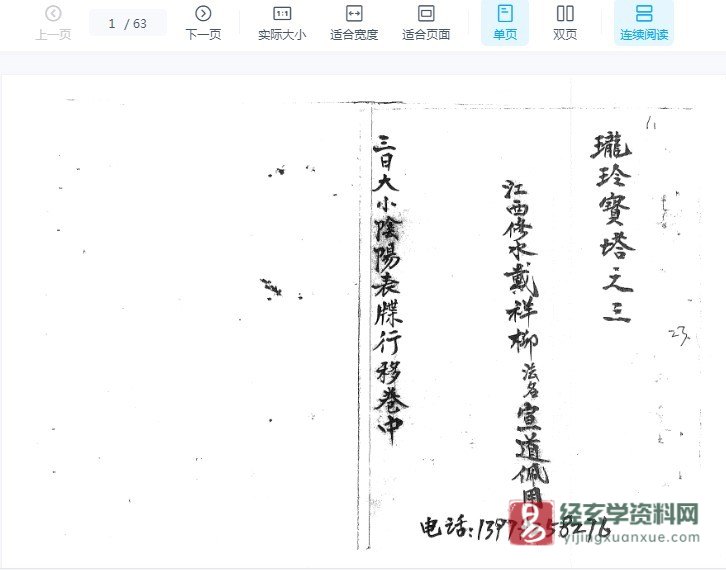 上一页
1 / 63
下一页
实际大小
适合宽度
适合页面
单页
双页
连续阅读
瓏玲寶塔之三
江西修水戴祥柳法名宣道佩用
三日大小陰陽表牒行移卷中
23.
电话:
易
经玄学资料网
yijingxuanxue.com